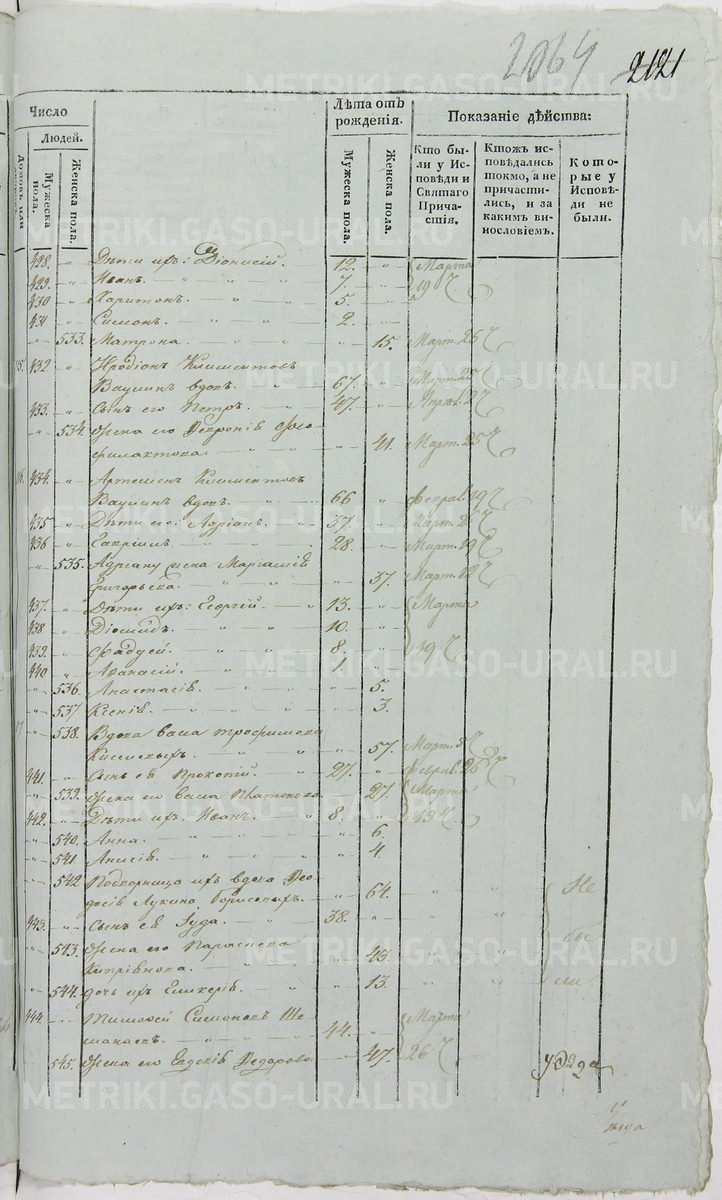 2064 2121
METRIKI.GASO-URAL.RU
Число
Людей.
Домовъ или
Мужеска пола.
Женска пола.
Лѣта отъ рожденія.
Мужеска пола.
Женска пола.
Показаніе дѣйства:
Кто были у Исповѣди и Святаго Причастія.
Ктожъ исповѣдались токмо, а не причастились, и за какимъ винословіемъ.
Которые у Исповѣди не были.
428. Дѣти ихъ: Діонисій. 12. Марта
429. Иванъ. 7. 19
430 Харитонъ. 5.
431 Симонъ. 2.
533. Матрона. 15. Март. 26
432. Иродіонъ Климентовъ
Ваулинъ вдовъ. 67. Март. 25
433. Сынъ его Петръ. 47. Апрѣл. 2
534. Жена его Февронія Фео-
филактова. 41. Март. 25
434. Артемонъ Климентовъ
Ваулинъ вдовъ. 66 Феврал. 19
435 Дѣти его: Адріанъ. 37. Март.
436 Гавріилъ. 28. Март. 19
535. Адріану жена Маріамія
Григорьева. 37. Март. 12
437. Дѣти ихъ: Георгій. 13. Марта
438 Діомидъ. 10.
439. Фаддей. 8. 19
440 Аѳанасій. 1.
536. Анастасія. 5.
537 Ксенія. 3.
538. Вдова Васса Трофимова
57. Март. 5
441. Сынъ ея Прокопій. 27. Феврал. 26
539. Жена его Васса Платонова 27. Марта
442. Дѣти ихъ Иванъ 8. 19
540. Анна. 6.
541 Анисія. 4.
542 Подворница ихъ вдова Ѳео-
досія Лукина Борисовыхъ. 64. Не
443. Сынъ ея Іуда. 38. бы
543. Жена его Параскева
Кипріянова. 43.
544. дочь ихъ Гликерія. 13. ли
444. Тимоѳей Симоновъ Ше-
44. Марта
545. Жена его Евдокія Ѳедорова 47. 26